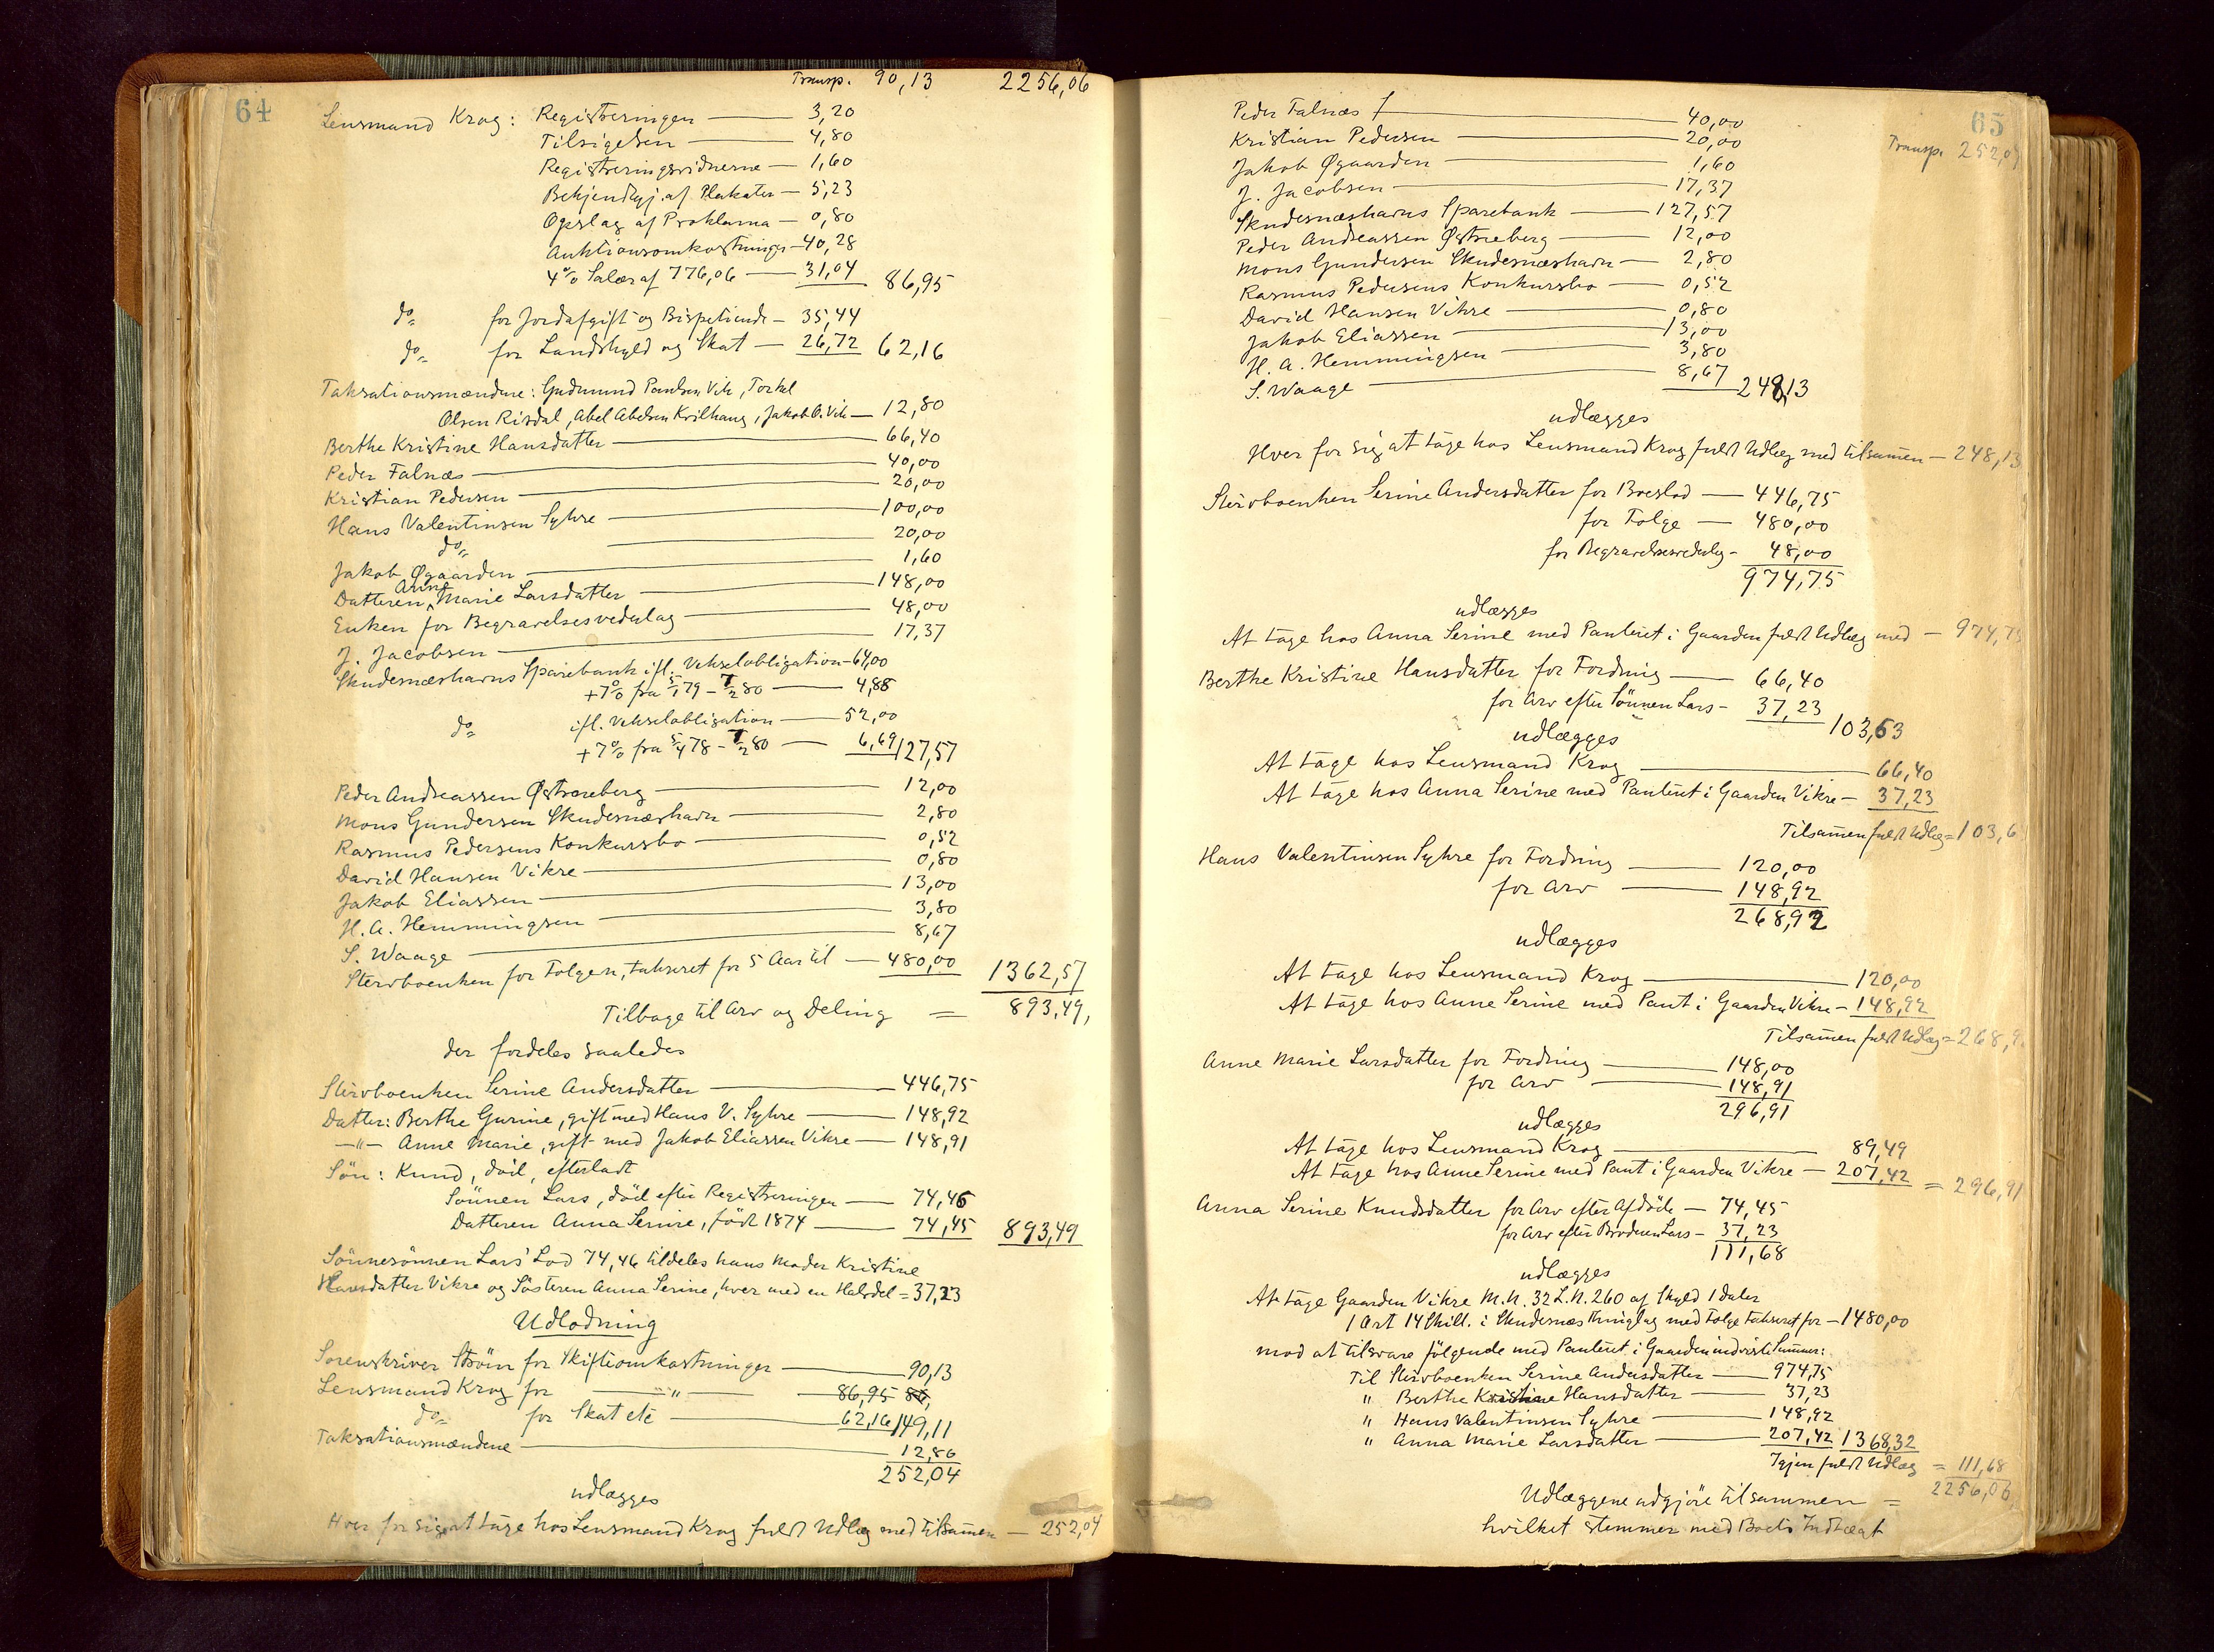 64
Transp. 90,13 2256,06
Lensmand Krog: Registreringen — 3,20
Tilsigelsen — 4,80
Registreringsvidnerne — 1,60
Bekjendtgj. af Plakater — 5,23
Opslag af Proklama — 0,80
Auktionsomkostninger — 40,28
4% Salær af 776,06 — 31,04 86,95
do„ for Jordafgift og Bispetiende — 35,44
do„ for Landskyld og Skat — 26,72 62,16
Taksationsmændene: Gudmund Paulsen Vik, Torkel
Olsen Risdal, Abel Abelsen Kvilhaug, Jakob O. Vik — 12,80
Berthe Kristine Hansdatter — 66,40
Peder Falnæs — 40,00
Kristian Pedersen — 20,00
Hans Valentinsen Syhre — 100,00
do„ — 20,00
Jakob Øgaarden — 1,60
Datteren Anne Marie Larsdatter — 148,00
Enken for Begravelsesvederlag — 48,00
J. Jacobsen — 17,37
Skudesnæshavns Sparebank ifl. Vekselobligation — 64,00
+ 7% fra 5/1 79 – 7/2 80 — 4,88
do„ ifl. Vekselobligation — 52,00
+ 7% fra 5/4 78 – 7/2 80 — 6,69 127,57
Peder Andreassen Østreberg — 12,00
Mons Gundersen Skudesnæshavn — 2,80
Rasmus Pedersens Konkursbo — 0,52
David Hansen Vikre — 0,80
Jakob Eliassen — 13,00
H. A. Hemmingsen — 3,80
S. Waage — 8,67
Stervboenken for Folgen, takseret for 5 Aar til — 480,00 1362,57
Tilbage til Arv og Deling = 893,49,
der fordeles saaledes
Stervboenken Serine Andersdatter — 446,75
Datter: Berthe Gurine, gift med Hans V. Syhre — 148,92
—"— Anne Marie, gift med Jakob Eliassen Vikre — 148,91
Søn: Knud, död, efterladt
Sønnen Lars, död efter Registreringen — 74,46
Datteren Anna Serine, født 1874 — 74,45 893,49
Sønnesønnen Lars' Lod 74,46 tildeles hans Moder Kristine
Hansdatter Vikre og Søsteren Anna Serine, hver med en Halvdel = 37,23
Udlodning
Sorenskriver Strøm for Skifteomkostninger — 90,13
Lensmand Krog for —"— 86,95
do„ for Skat etc — 62,16 149,11
Taksationsmændene — 12,80
252,04
udlægges
Hver for sig at tage hos Lensmand Krog fuldt Udlæg med tilsammen — 252,04
65
Transp. 252,04
Peder Falnæs — 40,00
Kristian Pedersen — 20,00
Jakob Øgaarden — 1,60
J. Jacobsen — 17,37
Skudesnæshavns Sparebank — 127,57
Peder Andreassen Østreberg — 12,00
Mons Gundersen Skudesnæshavn — 2,80
Rasmus Pedersens Konkursbo — 0,52
David Hansen Vikre — 0,80
Jakob Eliassen — 13,00
H. A. Hemmingsen — 3,80
S. Waage — 8,67 248,13
udlægges
Hver for sig at tage hos Lensmand Krog fuldt Udlæg med tilsammen — 248,13
Stervboenken Serine Andersdatter for Boeslod — 446,75
for Folge — 480,00
for Begravelsesvederlag — 48,00
974,75
udlægges
At tage hos Anna Serine med Panteret i Gaarden fuldt Udlæg med — 974,75
Berthe Kristine Hansdatter for Fordring — 66,40
for Arv efter Sønnen Lars — 37,23 103,63
udlægges
At tage hos Lensmand Krog — 66,40
At tage hos Anna Serine med Panteret i Gaarden Vikre — 37,23
Tilsammen fuldt Udlæg = 103,6
Hans Valentinsen Syhre for Fordring — 120,00
for Arv — 148,92
268,92
udlægges
At tage hos Lensmand Krog — 120,00
At tage hos Anne Serine med Pant i Gaarden Vikre — 148,92
Tilsammen fuldt Udlæg = 268,9
Anne Marie Larsdatter for Fordring — 148,00
for Arv — 148,91
296,91
udlægges
At tage hos Lensmand Krog — 89,49
At tage hos Anne Serine med Pant i Gaarden Vikre — 207,42 = 296,91
Anna Serine Knudsdatter for Arv efter Afdöde — 74,45
for Arv efter Broderen Lars — 37,23
111,68
udlægges
At tage Gaarden Vikre M.N. 32 L.N. 260 af Skyld 1 daler
1 Ort 14 Skill. i Skudesnæs Thinglag med Folge takseret for — 1480,00
mod at tilsvare følgende med Panteret i Gaarden indvisle Summer:
Til Stervboenken Serine Andersdatter — 974,75
" Berthe Kristine Hansdatter — 37,23
" Hans Valentinsen Syhre — 148,92
" Anna Marie Larsdatter — 207,42 1368,32
Igjen fuldt Udlæg = 111,68
Udlæggene udgjøre tilsammen = 2256,06
hvilket stemmer med Boets Indtægt